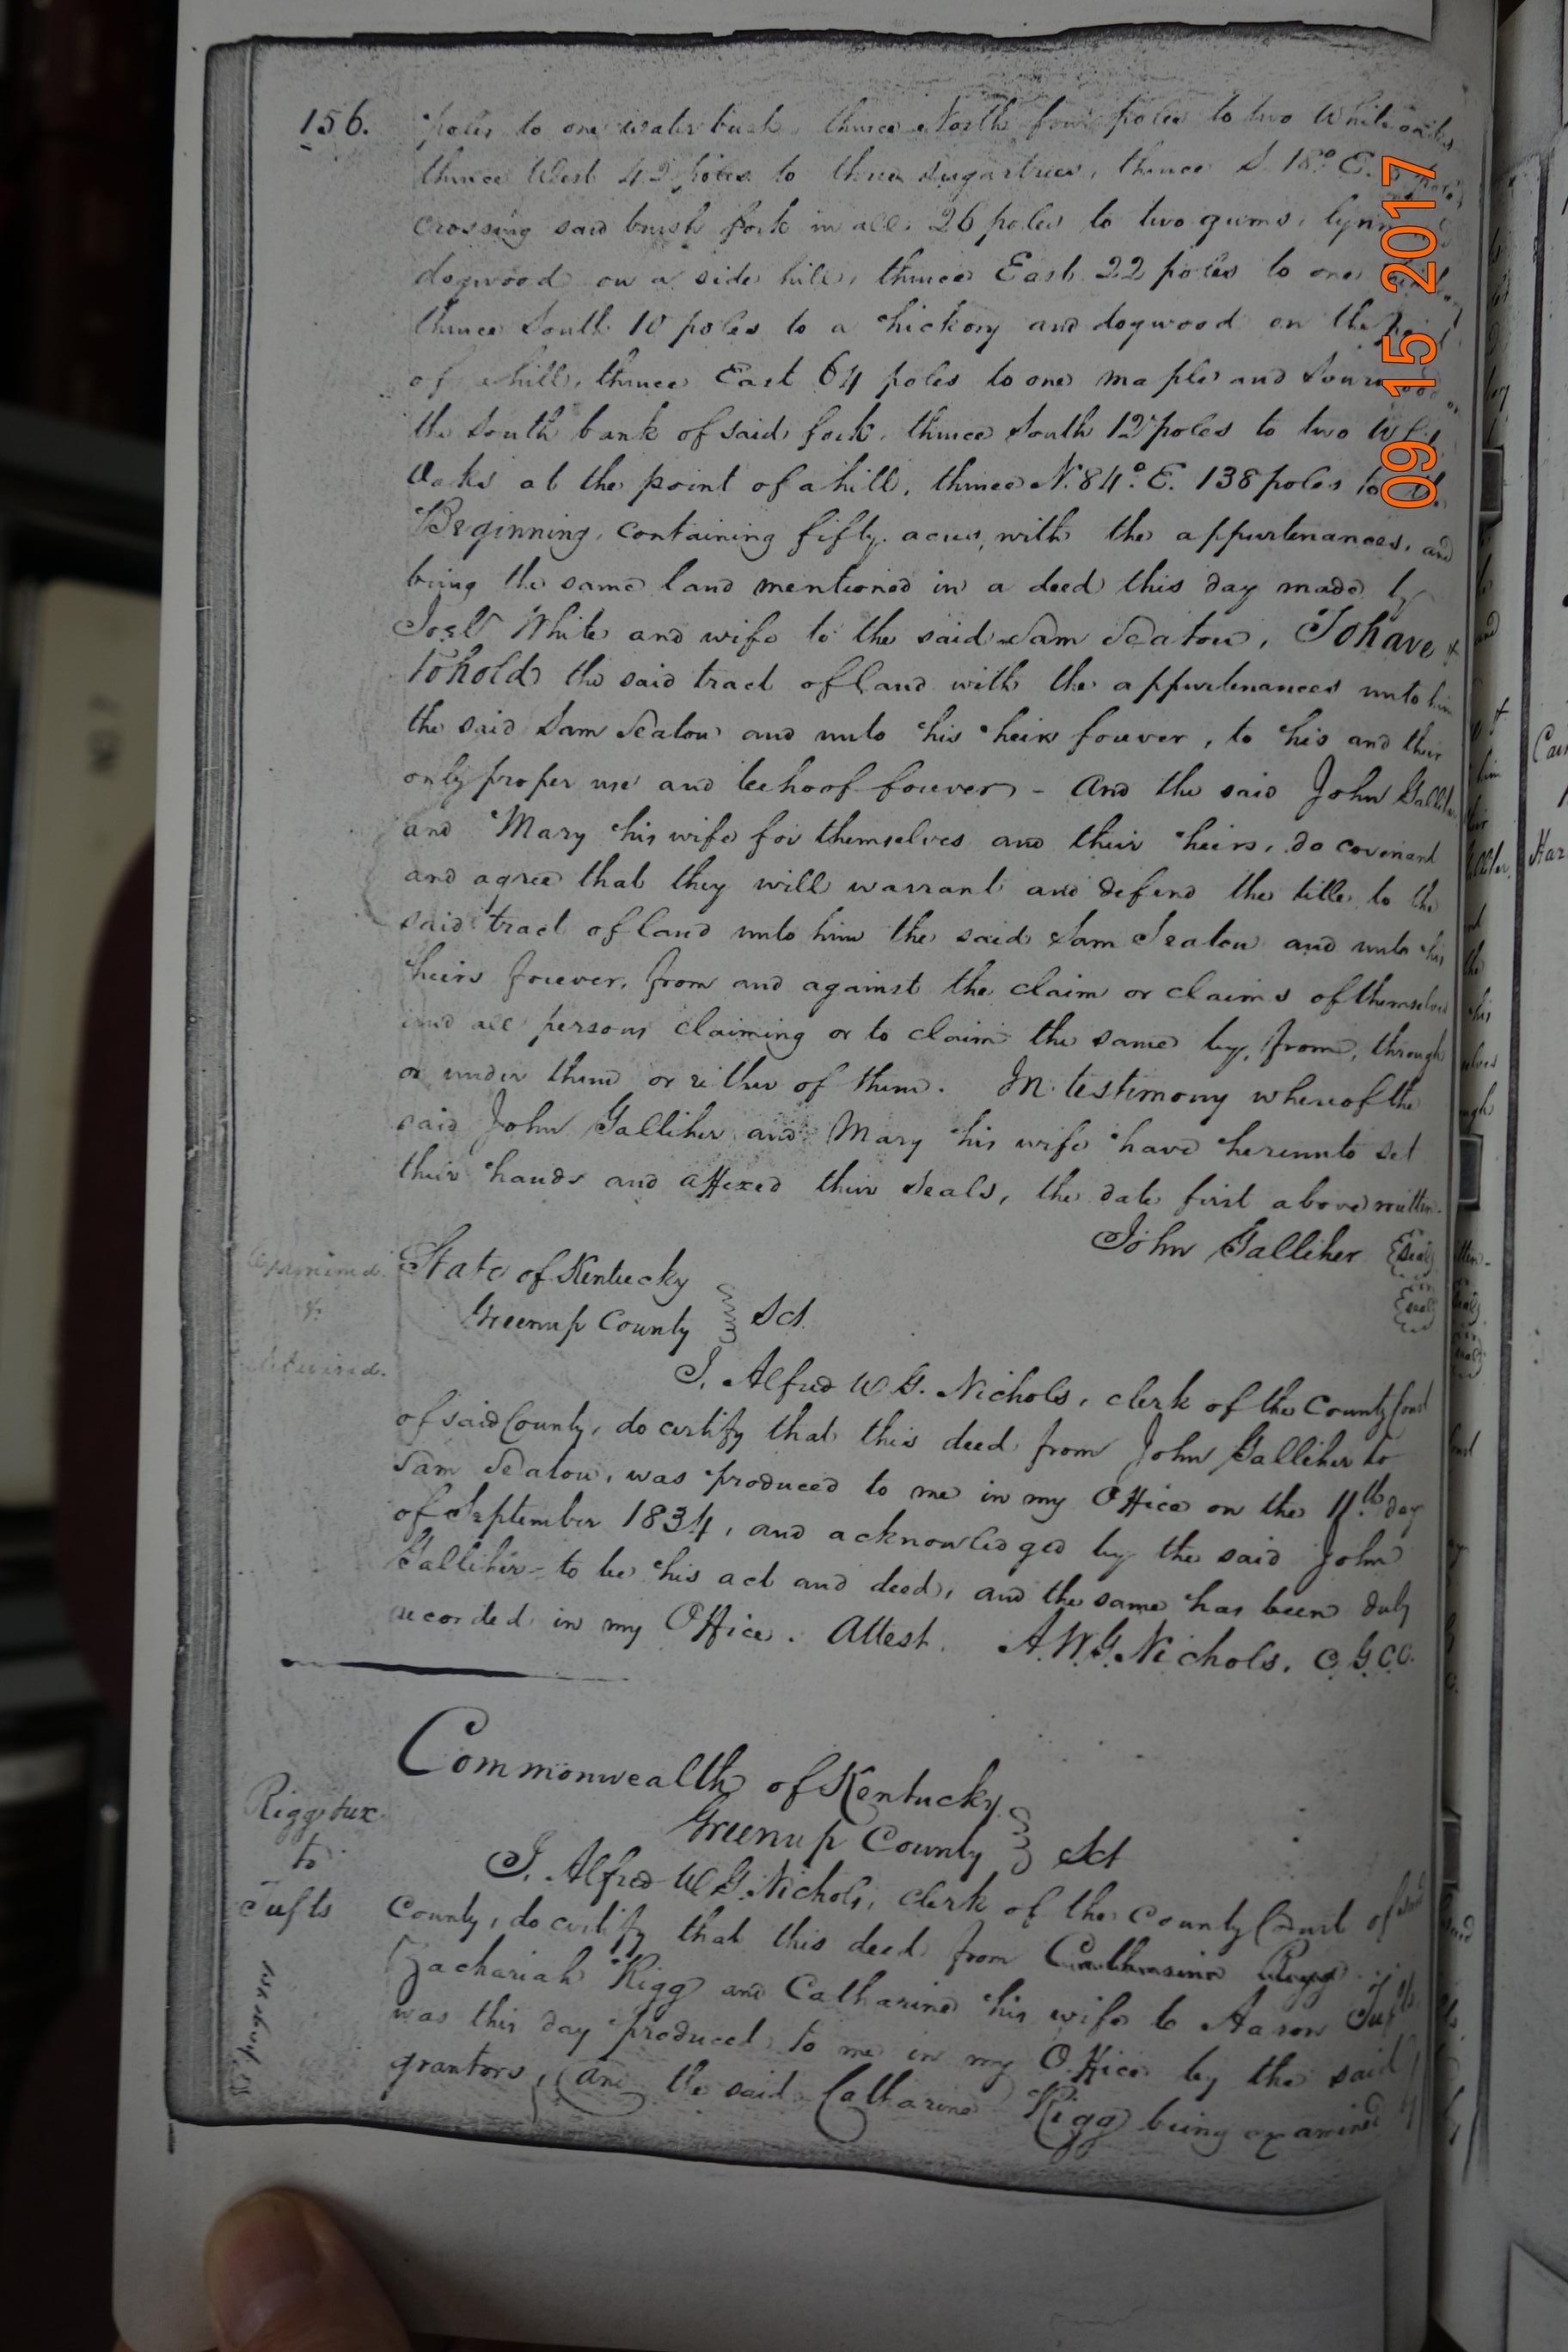 156.
poles to one water birch, thence North four poles to two White oaks
thence West 42 poles to three sugartrees, thence S. 18° E.
crossing said brush fork in all, 26 poles to two gums, lynn
dogwood on a side hill, thence East 22 poles to one
thence South 10 poles to a hickory and dogwood on the point
of a hill, thence East 64 poles to one maple and Sourwood on
the South bank of said fork, thence South 12 poles to two White
Oaks at the point of a hill, thence N. 84° E. 138 poles to the
Beginning, containing fifty acres, with the appurtenances, and
being the same land mentioned in a deed this day made by
Joel White and wife to the said Sam Seaton, To have &
to hold the said tract of land with the appurtenances unto him
the said Sam Seaton and unto his heirs forever, to his and their
only proper use and behoof forever - And the said John Galliher
and Mary his wife for themselves and their heirs, do covenant
and agree that they will warrant and defend the title to the
said tract of land unto him the said Sam Seaton and unto his
heirs forever, from and against the claim or claims of themselves
and all persons claiming or to claim the same by, from, through
or under them or either of them. In testimony whereof the
said John Galliher and Mary his wife have hereunto set
their hands and affixed their Seals, the date first above written.
John Galliher Seal
Seal
Examined
&
delivered.
State of Kentucky
Greenup County Sct.
I, Alfred W G. Nichols, clerk of the County Court
of said County, do certify that this deed from John Galliher to
Sam Seaton, was produced to me in my Office on the 11th day
of September 1834, and acknowledged by the said John
Galliher to be his act and deed, and the same has been duly
recorded in my Office. Attest. A. W. G. Nichols, C. G. C. C.
Rigg & ux
to
Tufts
Commonwealth of Kentucky
Greenup County Sct
I, Alfred W G. Nichols, clerk of the County Court of said
County, do certify that this deed from Catharine Rigg
Zachariah Rigg and Catharine his wife to Aaron Tufts
was this day produced to me in my Office by the said
grantors, and the said Catharine Rigg being examined
09 15 2017